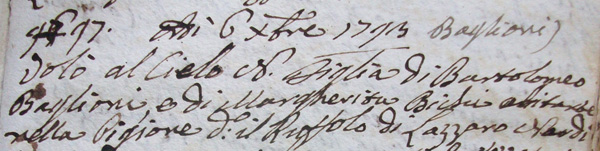 97. Adì 6 Xbre 1793 Baglioni)
Volò al Cielo N. Figlia di Bartolomeo
Baglioni e di Margherita abitante
nella Pigione d: il Ruffolo di Lazzaro Nardi